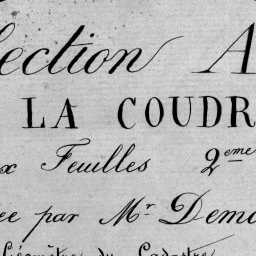 ection A
LA COUDR
x Feuilles 2eme
ee par Mr. Demo
Géomètre du Cadastre